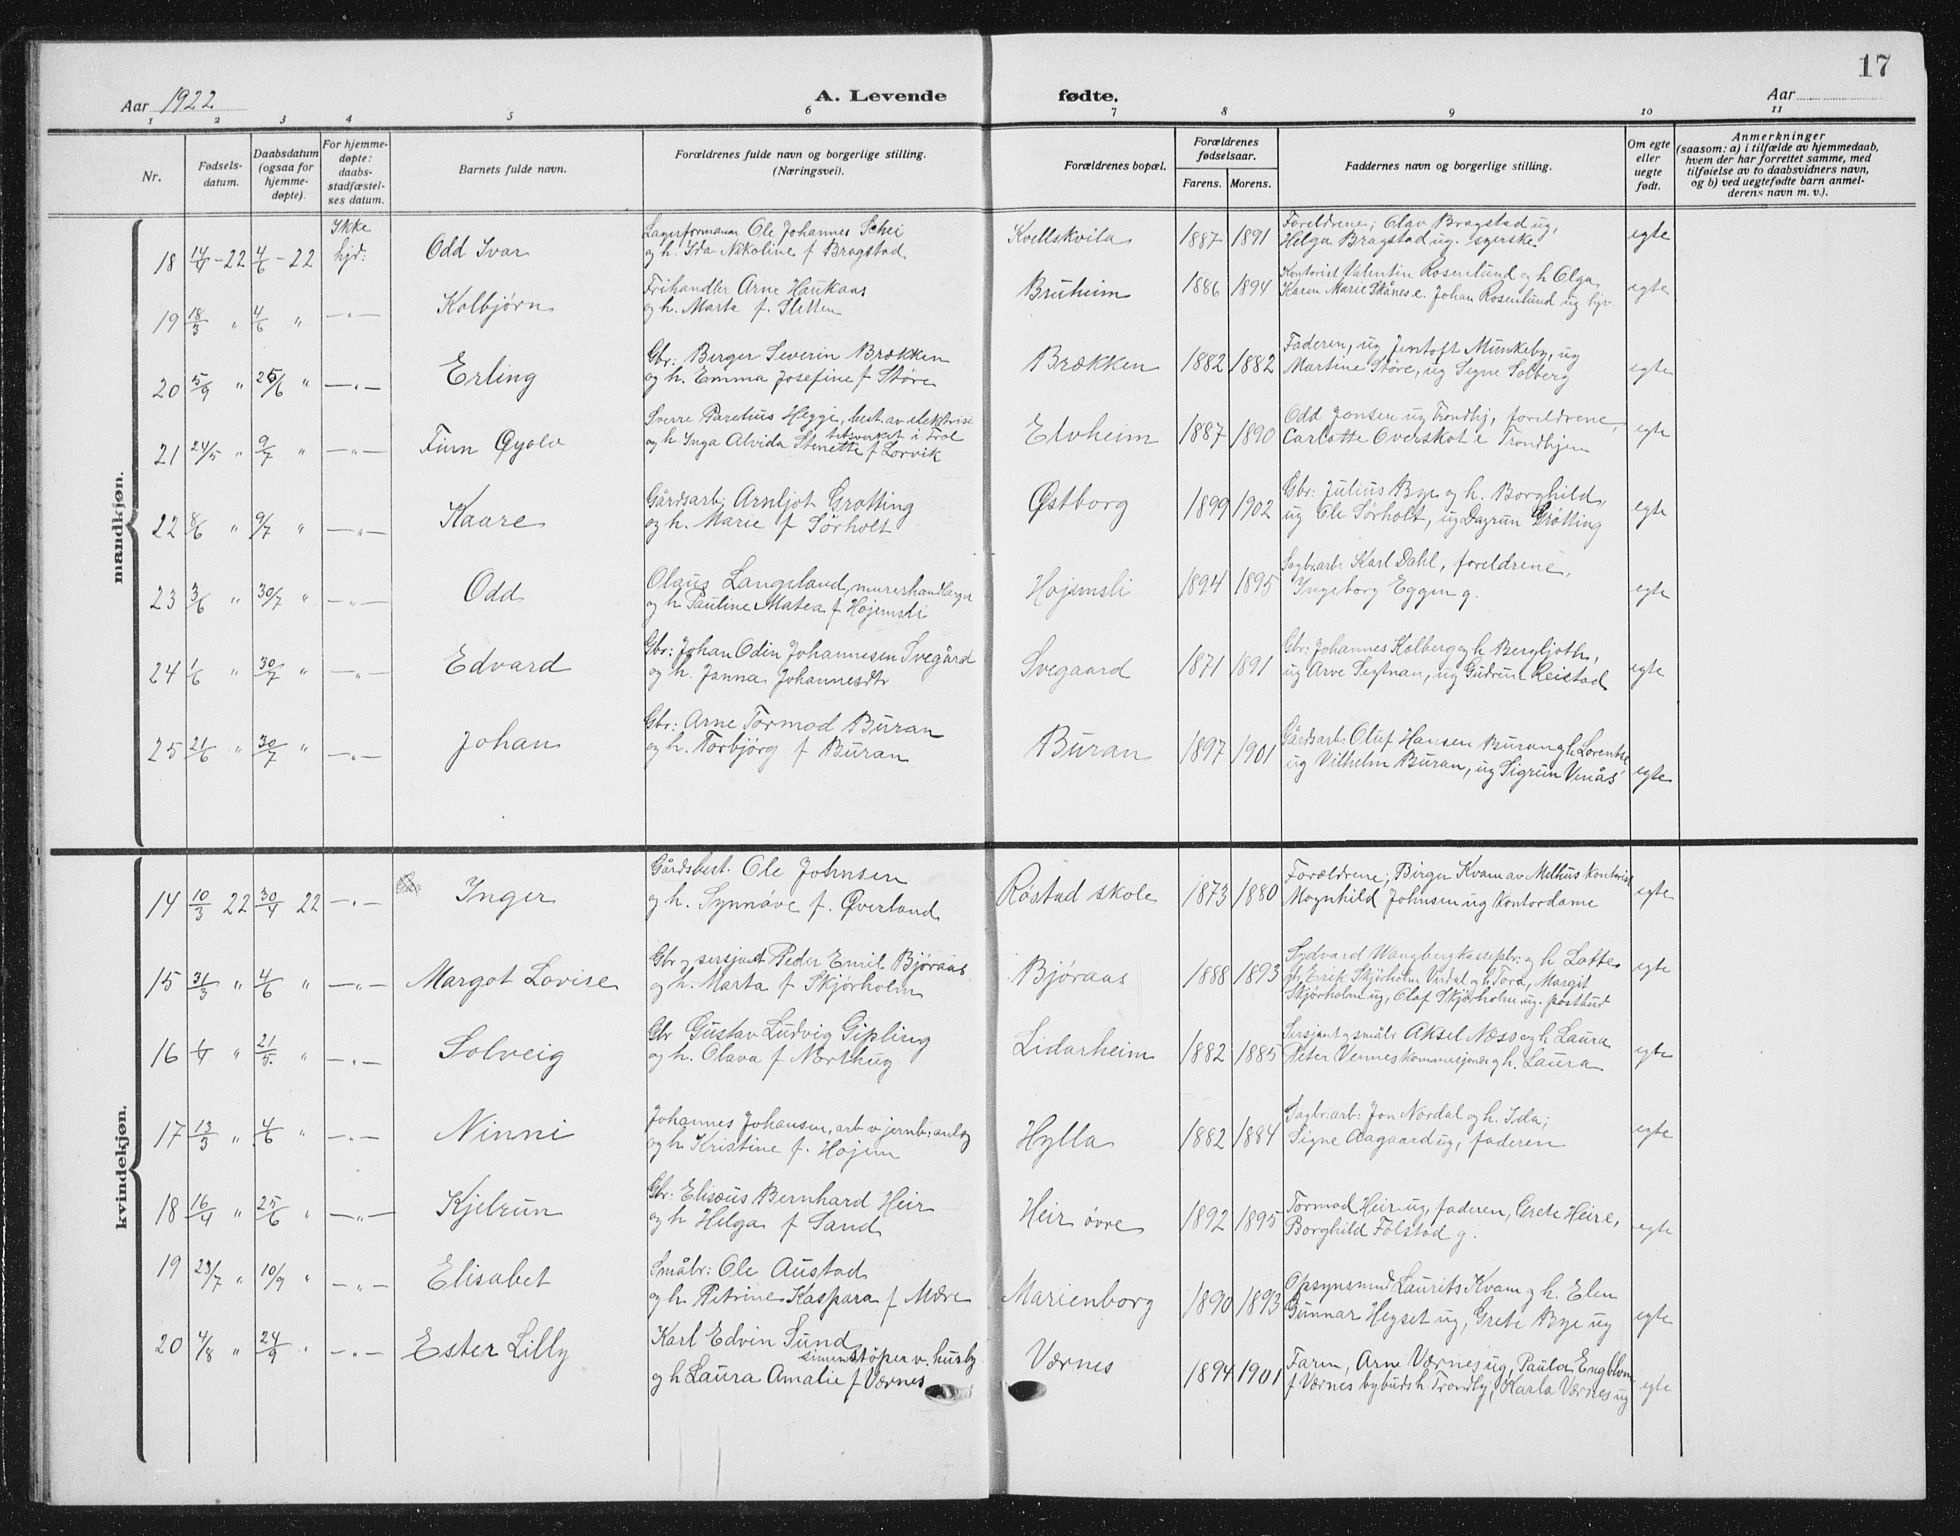 17
Aar 1922
A. Levende fødte.
Aar
1 2 3 4 5 6 7 8 9 10 11
Nr.
Fødsels-
datum.
Daabsdatum
(ogsaa for
hjemme-
døpte).
For hjemme-
døpte:
daabs-
stadfæstel-
ses datum.
Barnets fulde navn.
Forældrenes fulde navn og borgerlige stilling.
(Næringsvei).
Forældrenes bopæl.
Forældrenes
fødselsaar.
Farens. Morens.
Faddernes navn og borgerlige stilling.
Om egte
eller
uegte
født.
Anmerkninger
(saasom: a) i tilfælde av hjemmedaab,
hvem der har forrettet samme, med
tilføielse av to daabsvidners navn,
og b) ved uegtefødte barn anmel-
derens navn m. v.).
mandkjøn.
18 14/4 - 22 4/6 - 22 Ikke hjd: Odd Ivar
Lagerformann Ole Johannes Schei
og h. Ida Nikoline f Bragstad
Kvellskvila 1887 1891
Foreldrene; Olav Bragstad ug,
Helga Bragstad ug. syerske.
egte
19 18/3 " 4/6 " —"— Kolbjørn
Frihandler Arne Haukaas
og h. Marte f. Sletten
Bruheim 1886 1894
Kontorist Valentin Rosenlund og h Olga,
Karen Marie Skånes e. Johan Rosenlund ug
egte
20 5/9 " 25/6 " —"— Erling
Gbr: Berger Severin Brækken
og h. Emma Josefine f Støre
Brækken 1882 1882
Faderen, ug Jentoft Munkeby, ug
Martine Støre, ug Signe Solberg
egte
21 24/5 " 9/7 " —"— Finn Øyolv
Sverre Paretius Hegge, best. av elektrisi
tetsverket i Frol
og h Inga Alvida Stenette f Lorvik
Elvheim 1887 1890
Odd Jansen ug Trondhj, foreldrene,
Carlotte Overskot e Trondhjem
egte
22 8/6 " 9/7 " —"— Kaare
Gårdsarb; Arnljot Grøtting
og h. Marie f Sørholt
Østborg 1899 1902
Gbr: Julius Bye og h. Borghild,
ug Ole Sørholt, ug Dagrun Grøtting
egte
23 3/6 " 30/7 " —"— Odd
Olaus Langeland, murerhandlanger
og h Pauline Matea f Hojemsli
Hojemsli 1894 1895
Sagbr.arb: Karl Dahl, foreldrene,
Ingeborg Eggen g.
egte
24 1/6 " 30/7 " —"— Edvard
Gbr: Johan Odin Johannesen Svegård
og h. Janna Johannesdtr
Svegaard 1871 1891
Gbr: Johannes Kolberg og h Bergljoth,
ug Arve Segtnan, ug Gudrun Reistad
egte
25 21/6 " 30/7 " —"— Johan
Gbr: Arne Tormod Buran
og h. Torbjørg f Buran
Buran 1897 1901
Gårdsarb: Oluf Hansen Buran og h Lorentse
ug Vilhelm Buran, ug Sigrun Venås
egte
kvindekjøn.
14 10/3 22 30/4 22 —"— Inger
Gårdsbest. Ole Johnsen
og h. Synnøve f. Øverland
Røstad skole 1873 1880
Forældrene; Birger Kvam av Melhus kontorist
Magnhild Johnsen ug kontordame
egte
15 31/3 " 4/6 " —"— Margot Lovise
Gbr og sersjant Peder Emil Bjøraas
og h. Marta f Skjørholm
Bjøraas 1888 1893
Sydvard Wangberg kassebr: og h Lotte,
Erik Skjørholm Virdal og h Tora, Margit
Skjørholm ug, Olaf Skjørholm ug. postbud
egte
16 1/4 " 21/5. " —"— Solveig
Gbr Gustav Ludvig Gipling
og h. Olava f Northug
Lidarheim 1882 1885
Sersjant og småbr Aksel Næss og h Laura
Peter Vennes kommisjonær og h. Laura
egte
17 13/3 " 4/6 " —"— Ninni
Johannes Johansen, arb v jernb:anlæg
og h Kristine f. Hojem
Hylla 1882 1884
Sagbr:arb: Jon Nordal og h. Ida;
Signe Aagaard ug, faderen
egte
18 16/4 " 25/6 " —"— Kjelrun
Gbr: Elisæus Bernhard Heir
og h Helga f Sand
Heir øvre 1892 1895
Tormod Heir ug, faderen, Grete Heir e,
Borghild Folstad g.
egte
19 23/7 " 10/9 " —"— Elisabet
Småbr: Ole Austad
og h Petrine Kaspara f Mære
Marienborg 1890 1893
Opsynsmd Laurits Kvam og h. Elen
Gunnar Hegset ug, Grete Bye ug
egte
20 4/8 " 24/9 " —"— Ester Lilly
Karl Edvin Sund,
simenstøper v. husby
og h Laura Amalie f Værnes
Værnes 1894 1901
Faren, Arne Værnes ug, Paula Engblom
f Værnes bybuds h. Trondhj, Karla Værnes ug
egte